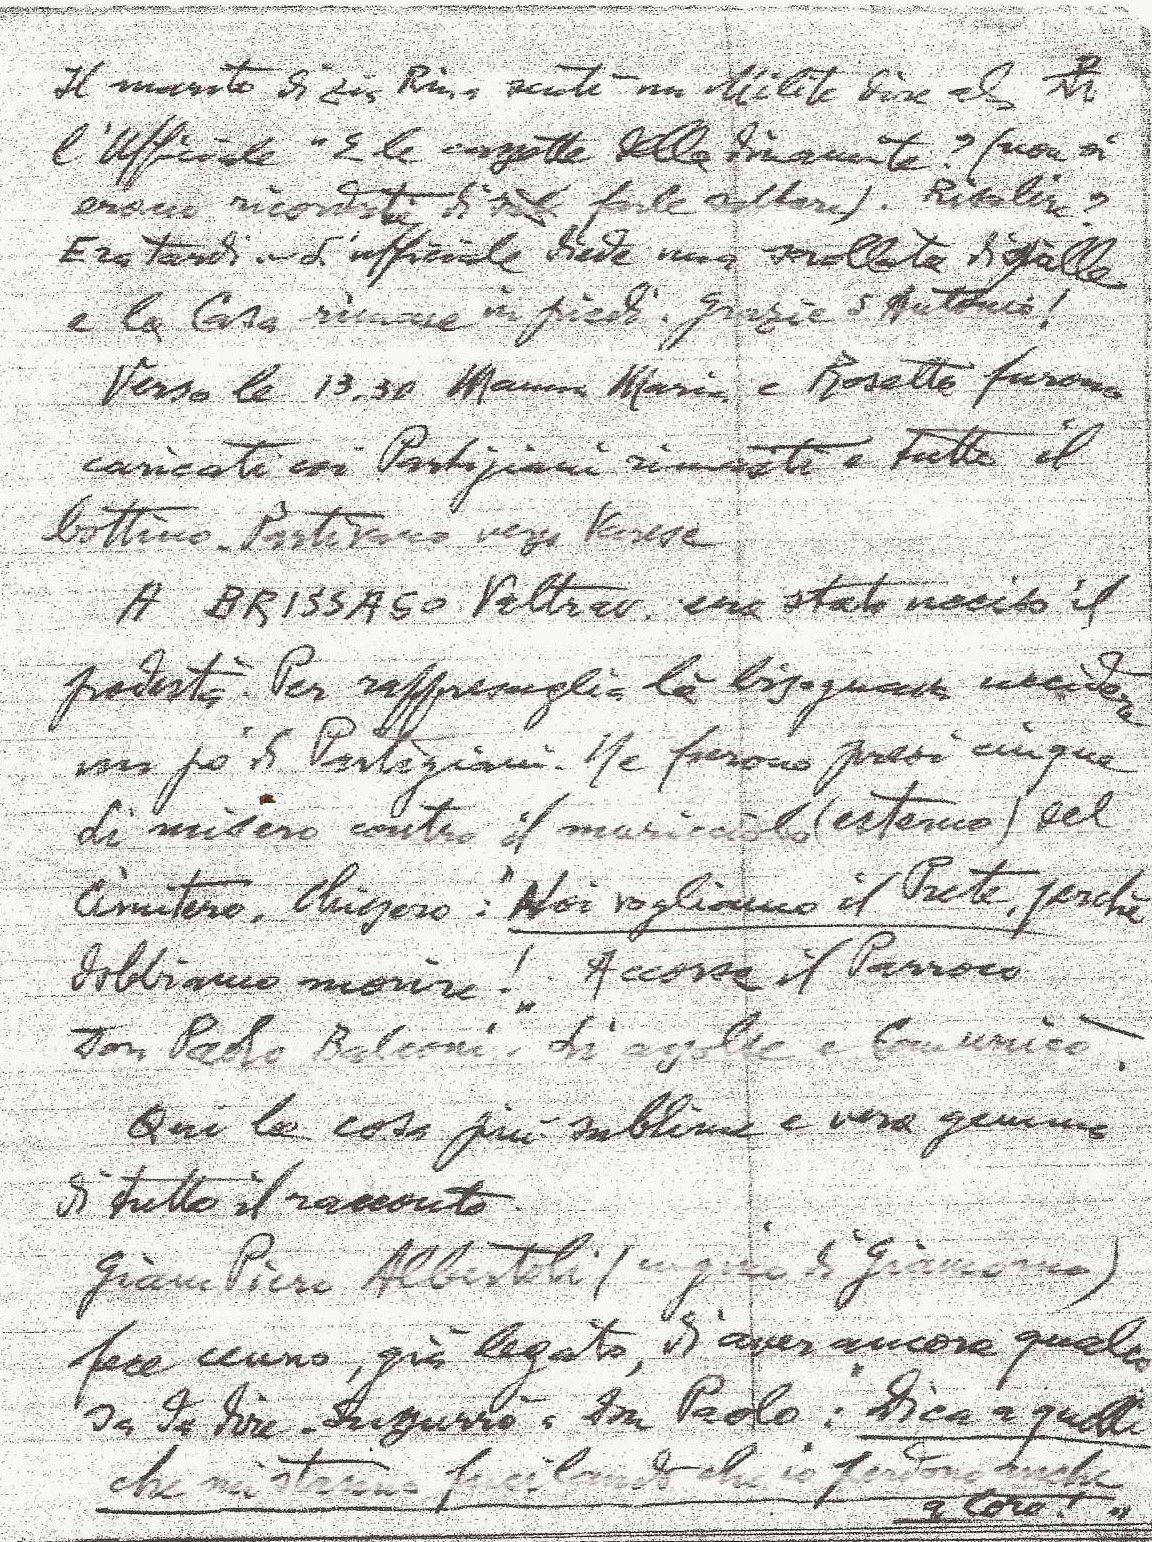 Il marito di zia Rina sentì un Milite dire al
l'Ufficiale "E le cassette della dinamite? (non si
erano ricordati di farle saltare). Risalire?
Era tardi. L'ufficiale diede una scrollata di spalle
e la Casa rimase in piedi. Grazie S Antonio!
Verso le 13.30 Mamma Maria e Rosetta furono
caricati coi Partigiani rimasti e tutto il
bottino. Partirono verso Varese
A BRISSAGO Valtrav. era stato ucciso il
podestà. Per rappresaglia là bisognava uccidere
un po' di Partigiani. Ne furono presi cinque
Li misero contro il muricciolo (esterno) del
Cimitero. Chiesero: "Noi vogliamo il Prete, perchè
dobbiamo morire!" Accorse il Parroco
Don Paolo Balconi. Li ascoltò e Comunicò.
Qui la cosa più sublime e vera gemma
di tutto il racconto.
GianPiero Albertoli (cugino di Giacomo)
fece cenno, già legato, di aver ancora qualco
sa da dire. Sussurrò a Don Paolo: "Dica a quelli
che mi stanno fucilando che io perdono anche
a loro!"